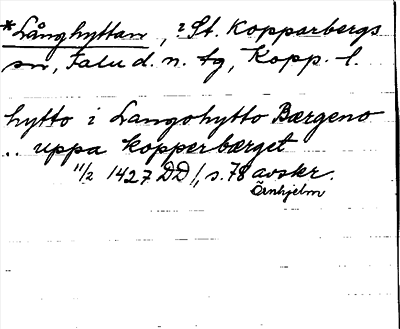 *Långhyttan, ? St. Kopparbergs
sn, Falu d. n. tg, Kopp. l.
hytto i Langohytto Bærgeno
.. uppa kopperbærget
11/2 1427 DD 1, s. 78 avskr.
Örnhjelm